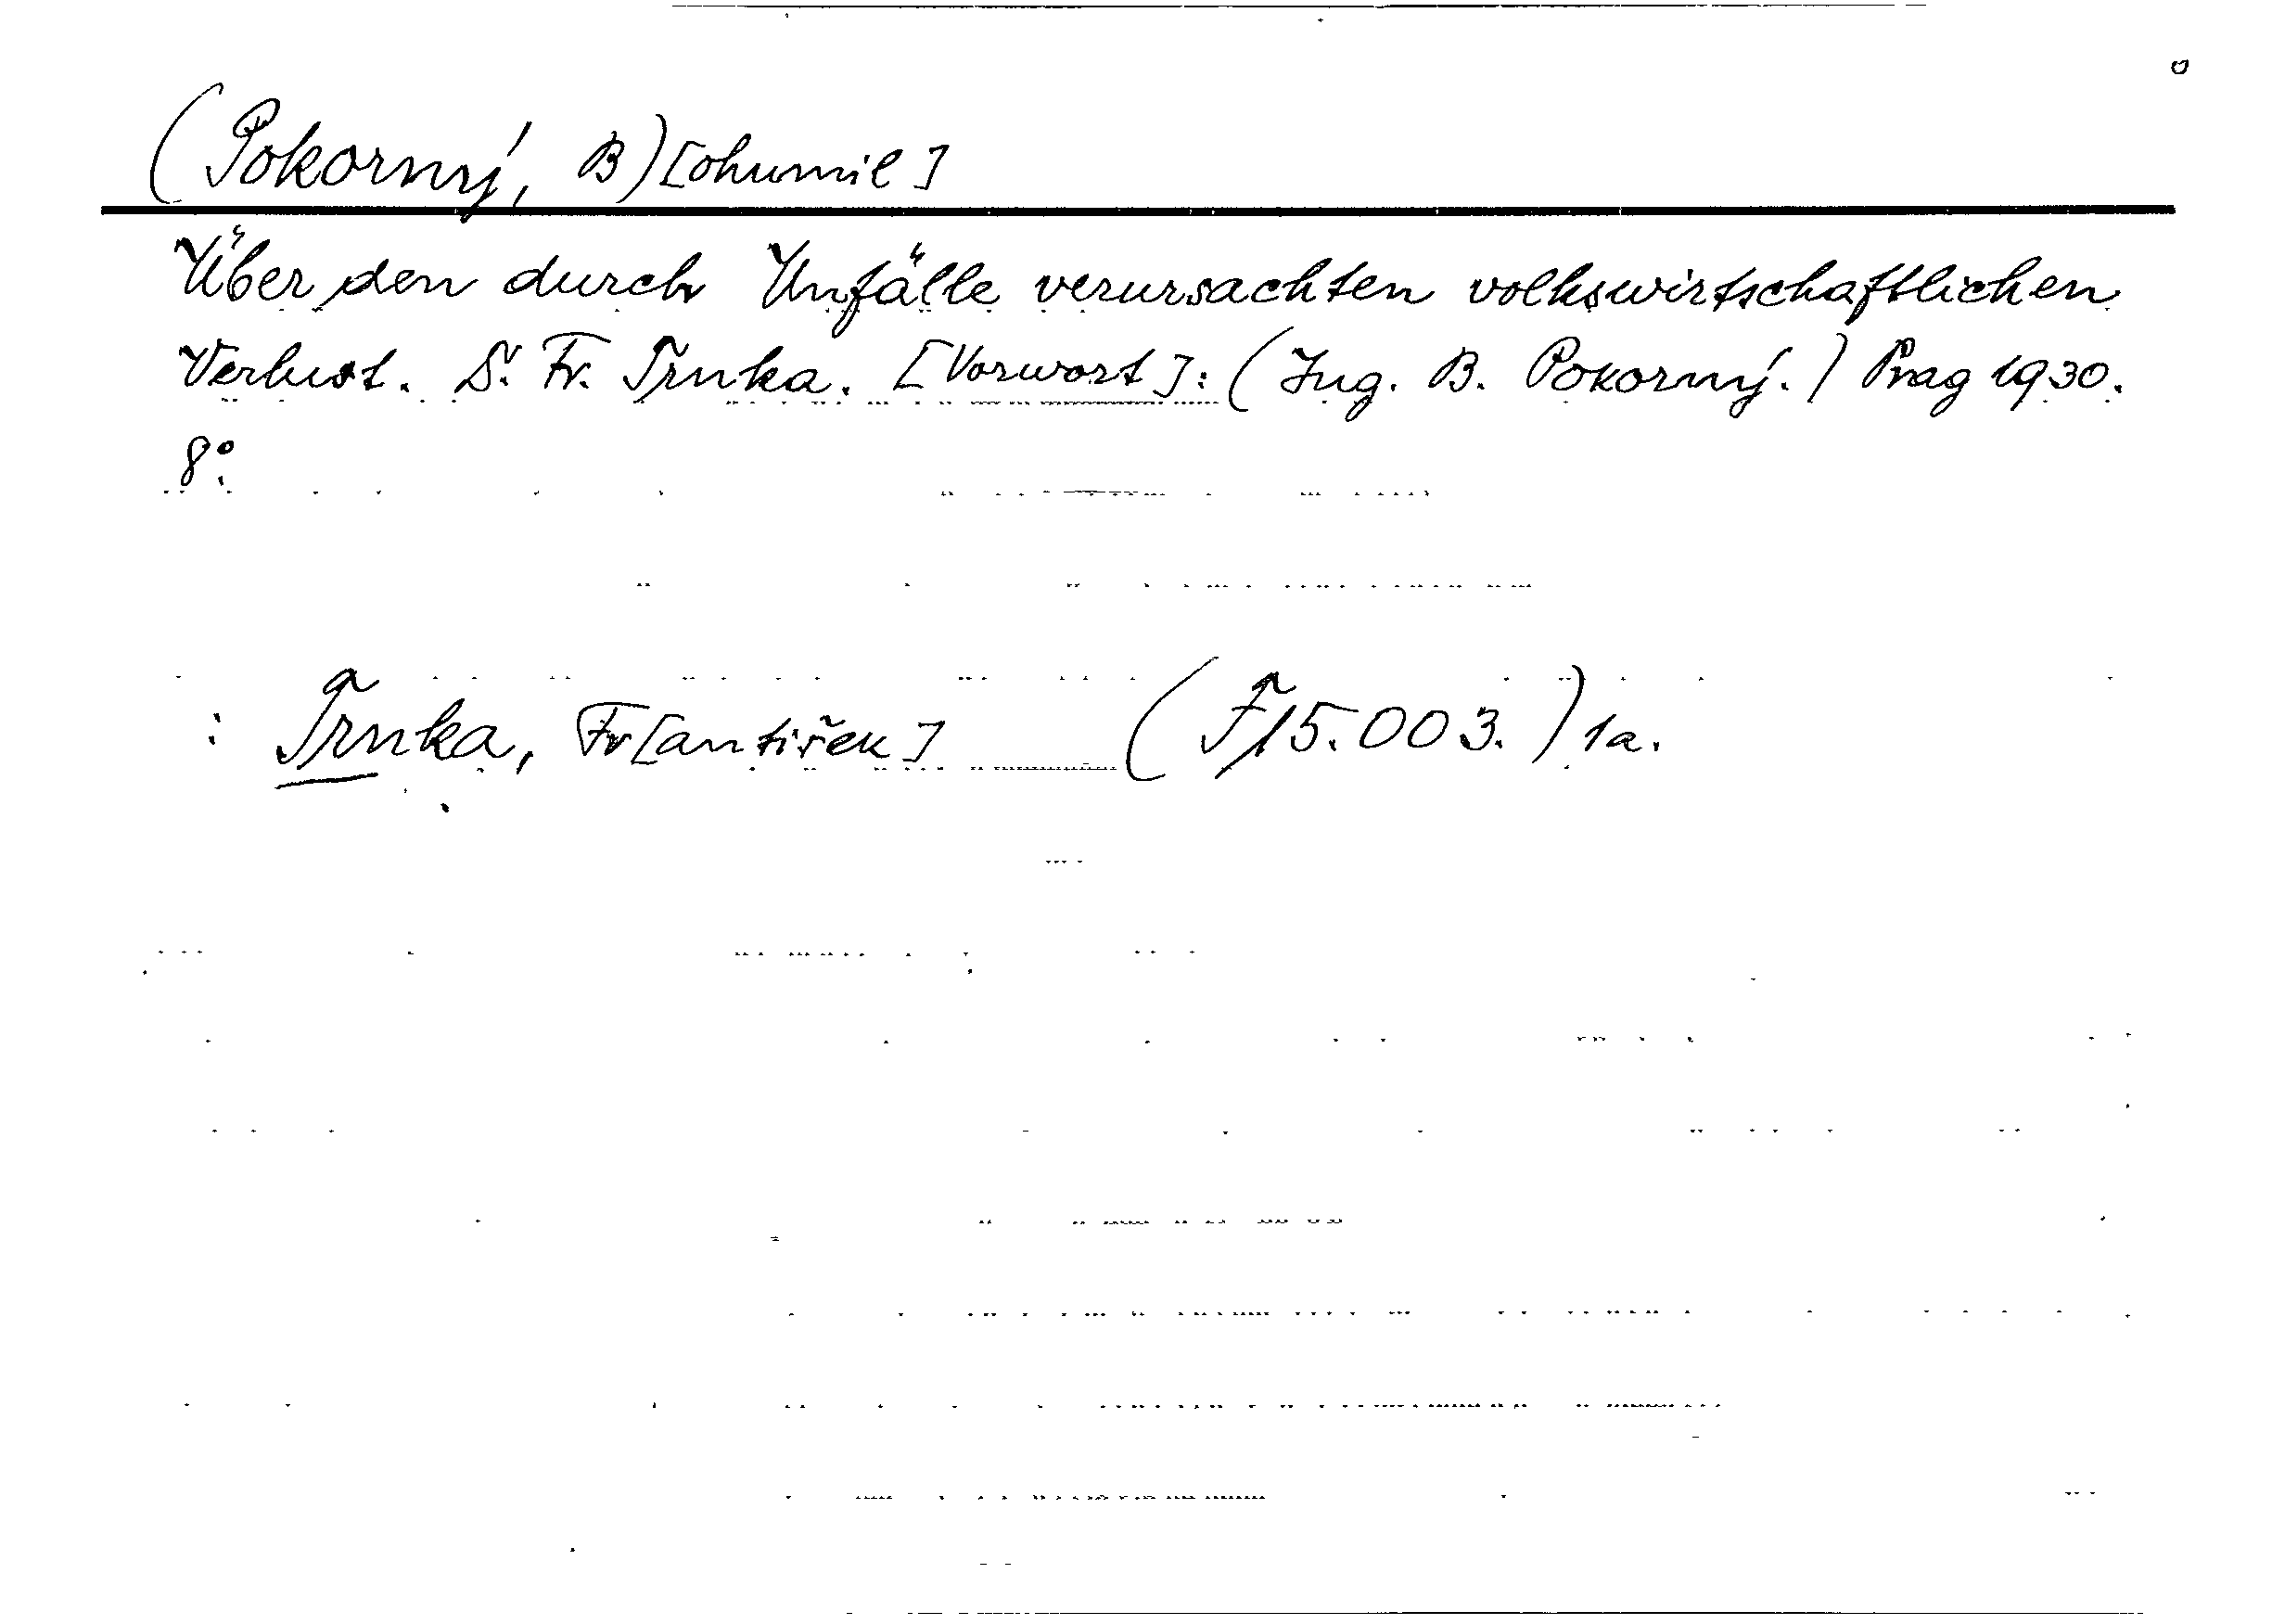 (Pokorný, B)[ohumil]
Über den durch Unfälle verursachten volkswirtschaftlichen
Verlust. D: Fr. Trnka. [Vorwort]: (Ing. B. Pokorný.) Prag 1930.
8°.
: Trnka, Fr[antiřek] (F/15.003.) 1a.